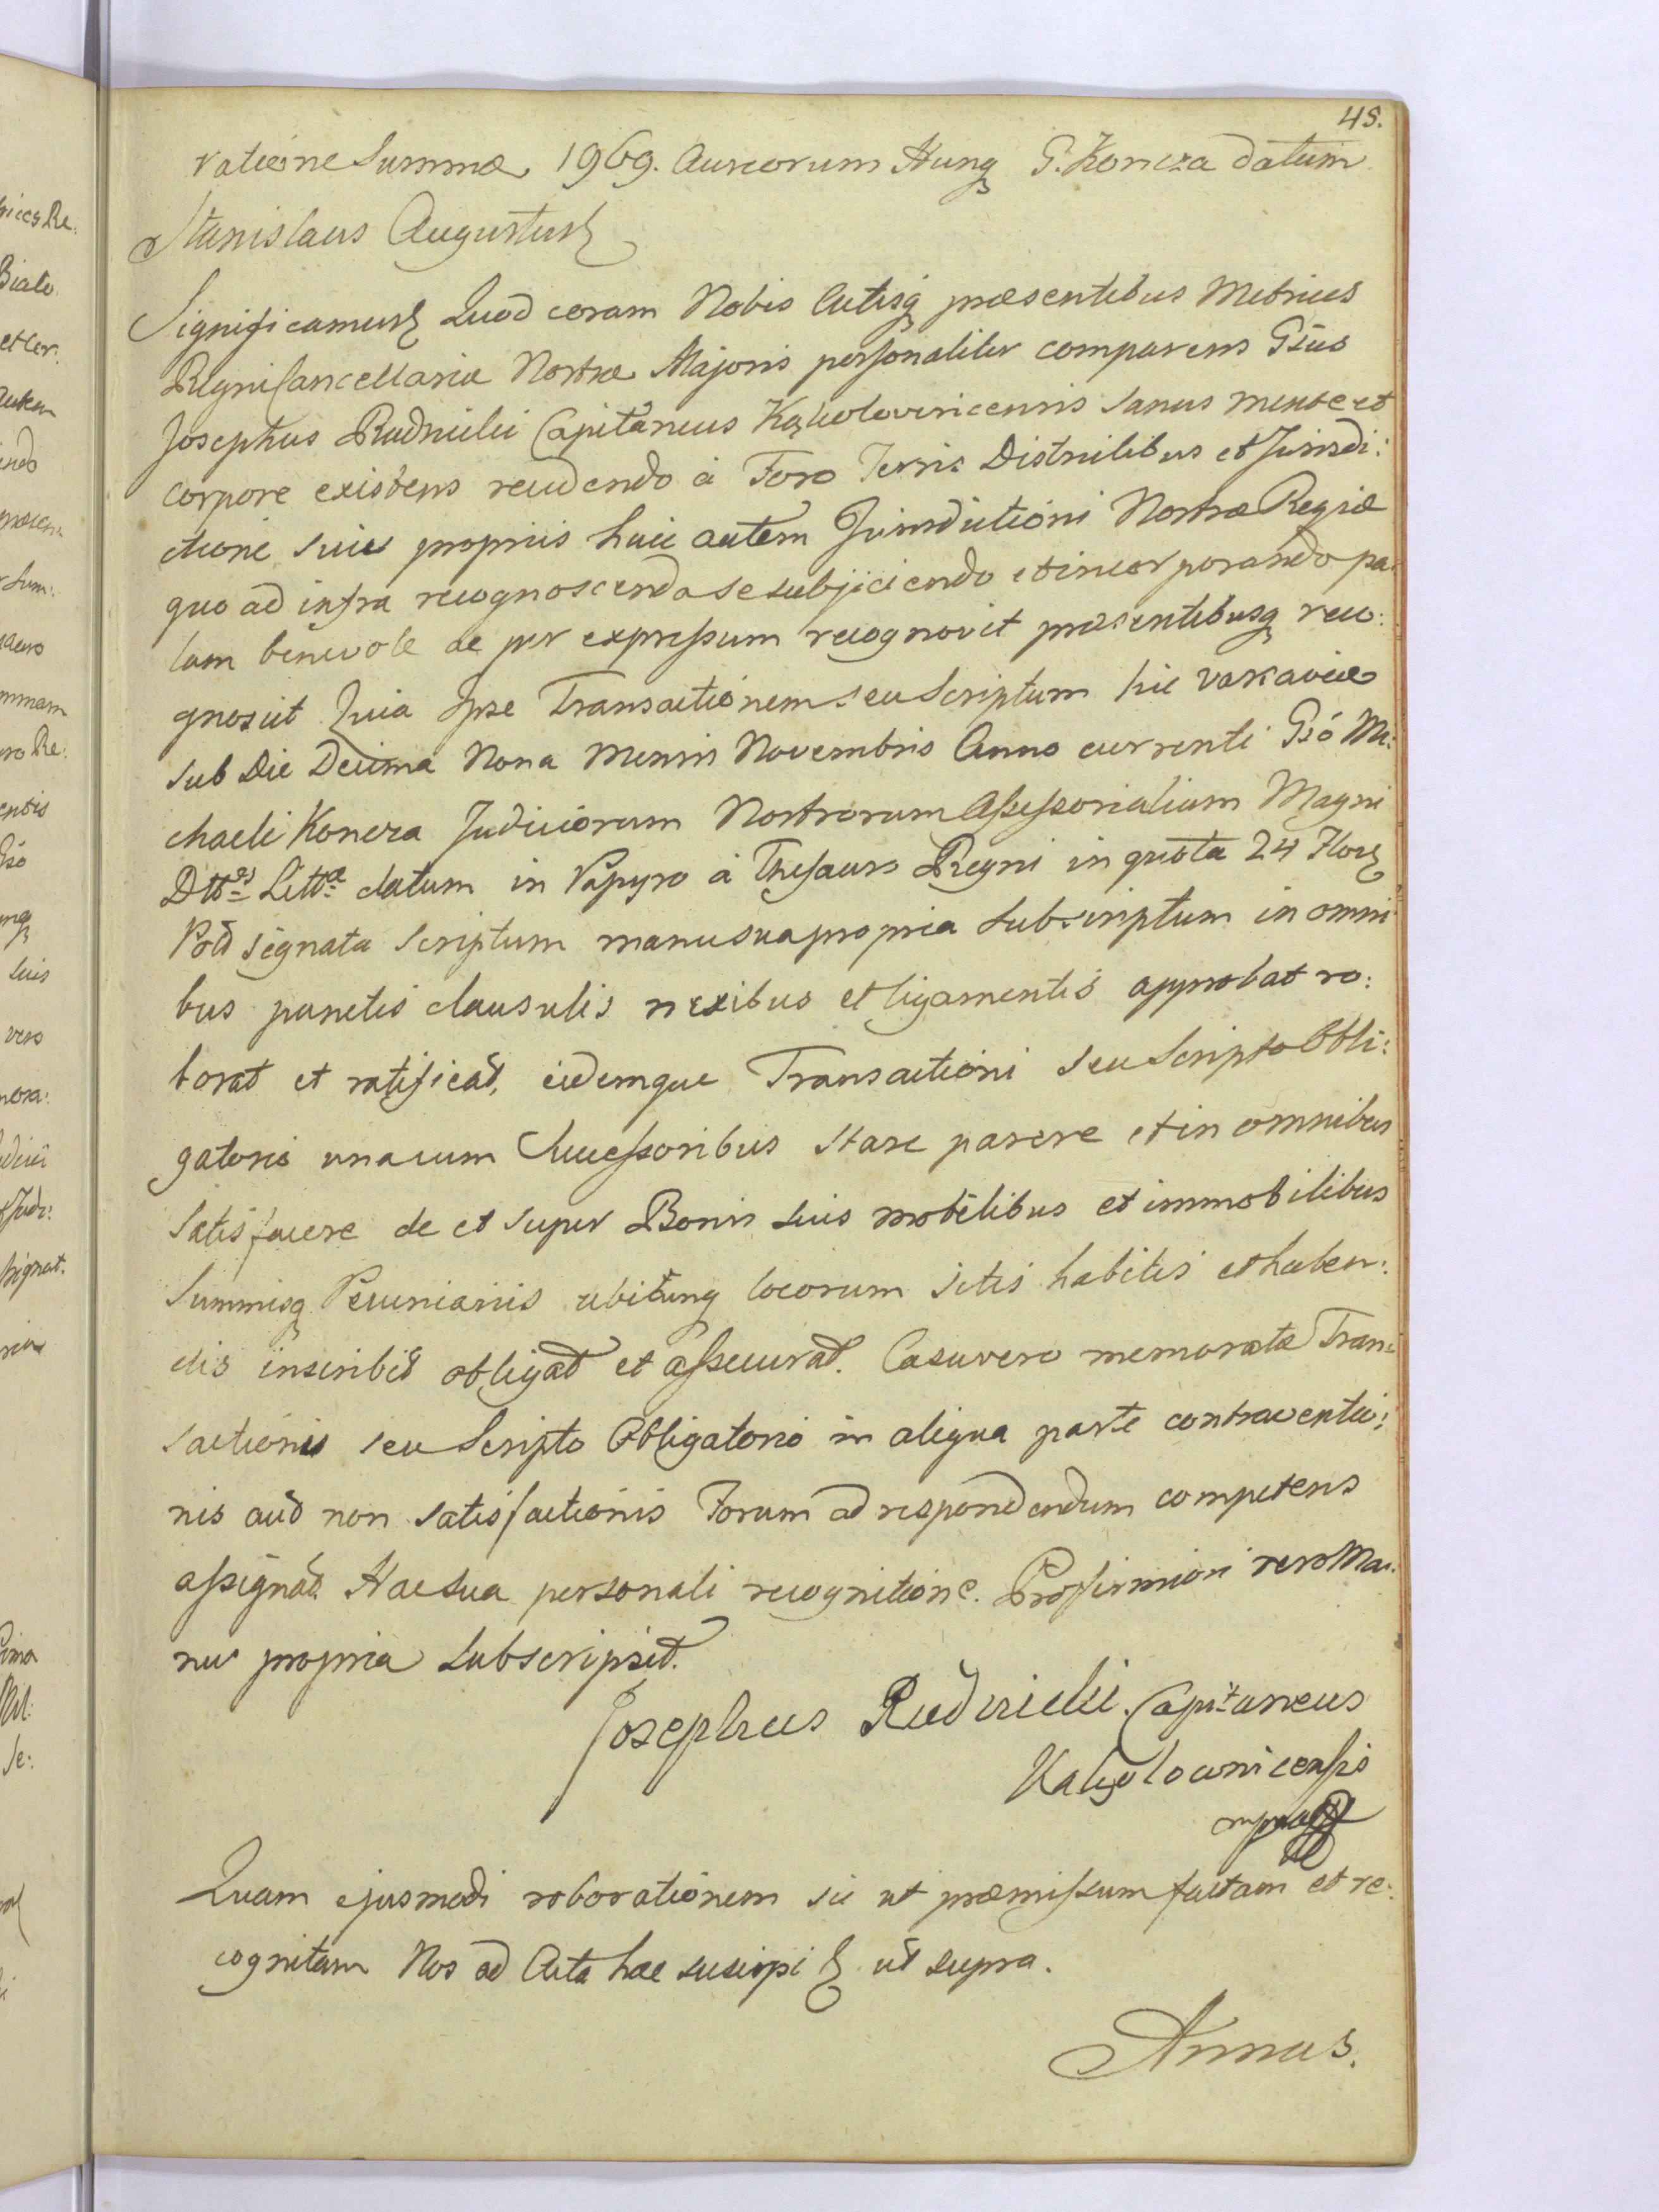 48.
ratione Summæ 1969. Aureorum Hung G. Koncza datum
Stanislaus Augustus
Significamus Quod coram Nobis Actisq præsentibus Metrices
Regni Cancellariæ Nostræ Majoris personaliter comparens Gsus
Josephus Rudnicki Capitaneus Kąkolovnicensis Sanus mente et
corpore existens recedendo à Foro Terris Districtibus et Jurisdi:
ctione suis propriis huic autem Jurisdictioni Nostræ Regiæ
quo ad infra recognoscenda se subjiciendo et incorporando pa:
lam benevole ac per expressum recognovit præsentibusq reco:
gnoscit Quia Ipse Transactionem seu Scriptum hic Varsaviæ
sub Die Decima Nona Mensis Novembris Anno currenti Gso Mi:
chaeli Koncza Judiciorum Nostrorum Assessorialium Magni
Dttus Littæ datum in Papyro à Thesauro Regni in quota 24 Flor
Pold signata Scriptum manu sua propria Subscriptum in omni
bus punctis clausulis nexibus et ligamentis approbat ro:
borat et ratificat, eidemque Transactioni seu Scripto Obli:
gatorio unacum Successoribus stare parere et in omnibus
satisfacere de et super Bonis suis mobilibus et immobilibus
Summisq Pecuniariis ubicunq locorum sitis habitis et haben:
dis inscribit obligat et assecurat. Casu vero memoratæ Tran:
sactionis seu Scripto Obligatorio in aliqua parte contraventio:
nis aut non satisfactionis Forum ad respondendum competens
assignat. Hac sua personali recognitione. Pro firmiori vero Ma:
nu propria Subscripsit.
Josephus Rudnicki Capitaneus
Kąkolownicensis
mpria
Quam ejusmodi roborationem sic ut præmissum factam et re:
cognitam Nos ad Acta hæc suscipi ut supra.
Annus.